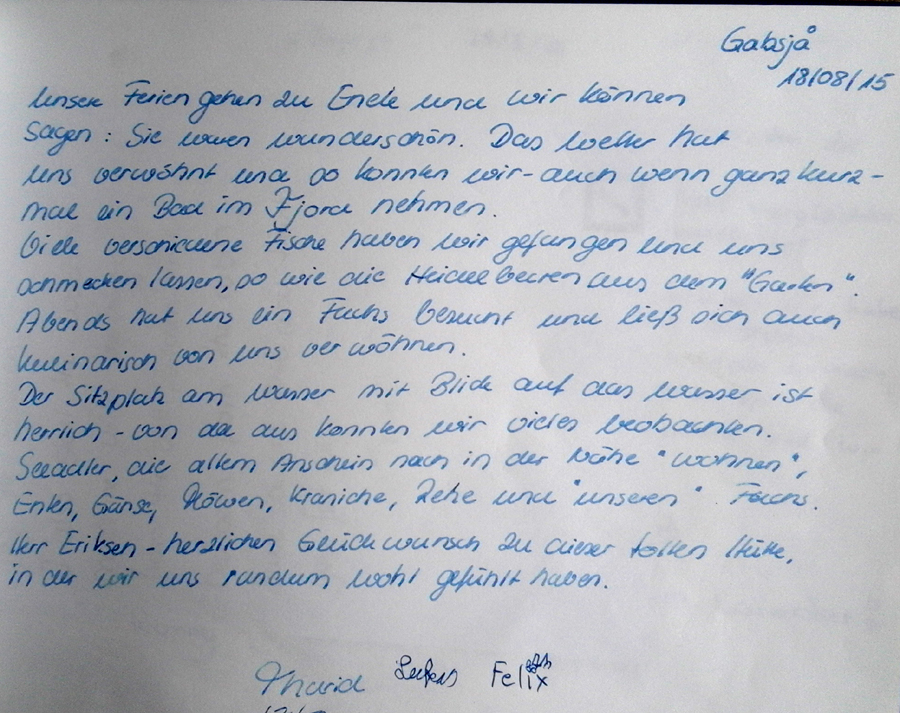 Gabsjå
18/08/15
Unsere Ferien gehen zu Ende und wir können
sagen: Sie waren wunderschön. Das Wetter hat
uns verwöhnt und so konnten wir - auch wenn ganz kurz -
mal ein Bad im Fjord nehmen.
Viele verschiedene Fische haben wir gefangen und uns
schmecken lassen, so wie die Heidelbeeren aus dem "Garten".
Abends hat uns ein Fuchs besucht und ließ sich auch
kulinarisch von uns verwöhnen.
Der Sitzplatz am Wasser mit Blick auf das Wasser ist
herrlich - von da aus konnten wir vieles beobachten.
Seeadler, die allem Anschein nach in der Nähe "wohnen",
Enten, Gänse, Möwen, Kraniche, Rehe und "unseren" Fuchs.
Herr Eriksen - herzlichen Glückwunsch zu dieser tollen Hütte,
in der wir uns rundum wohl gefühlt haben.
Felix